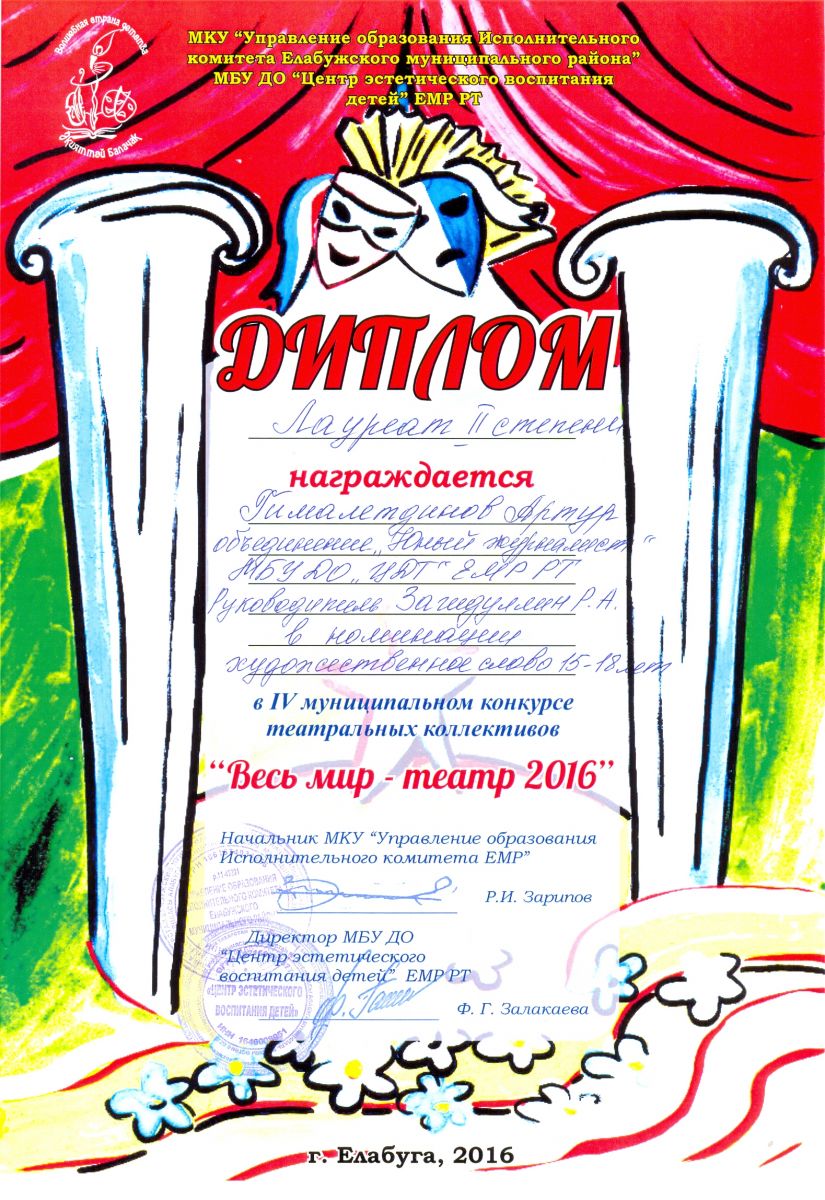 Волшебная страна детства
Җияттәй балачак
МКУ “Управление образования Исполнительного
комитета Елабужского муниципального района”
МБУ ДО “Центр эстетического воспитания
детей” ЕМР РТ
ДИПЛОМ
Лауреат II степени
награждается
Гималетдинов Артур
объединение „Юный журналист“
МБУ ДО „ЦДТ“ ЕМР РТ
Руководитель Загидуллин Р.А.
в номинации
художественное слово 15-18 лет
в IV муниципальном конкурсе
театральных коллективов
“Весь мир - театр 2016”
Начальник МКУ “Управление образования
Исполнительного комитета ЕМР”
Р.И. Зарипов
Директор МБУ ДО
“Центр эстетического
воспитания детей” ЕМР РТ
Ф. Г. Залакаева
УПРАВЛЕНИЕ ОБРАЗОВАНИЯ
ИСПОЛНИТЕЛЬНОГО КОМИТЕТА
ЕЛАБУЖСКОГО
МУНИЦИПАЛЬНОГО
«ЦЕНТР ЭСТЕТИЧЕСКОГО
ВОСПИТАНИЯ ДЕТЕЙ»
г. Елабуга, 2016